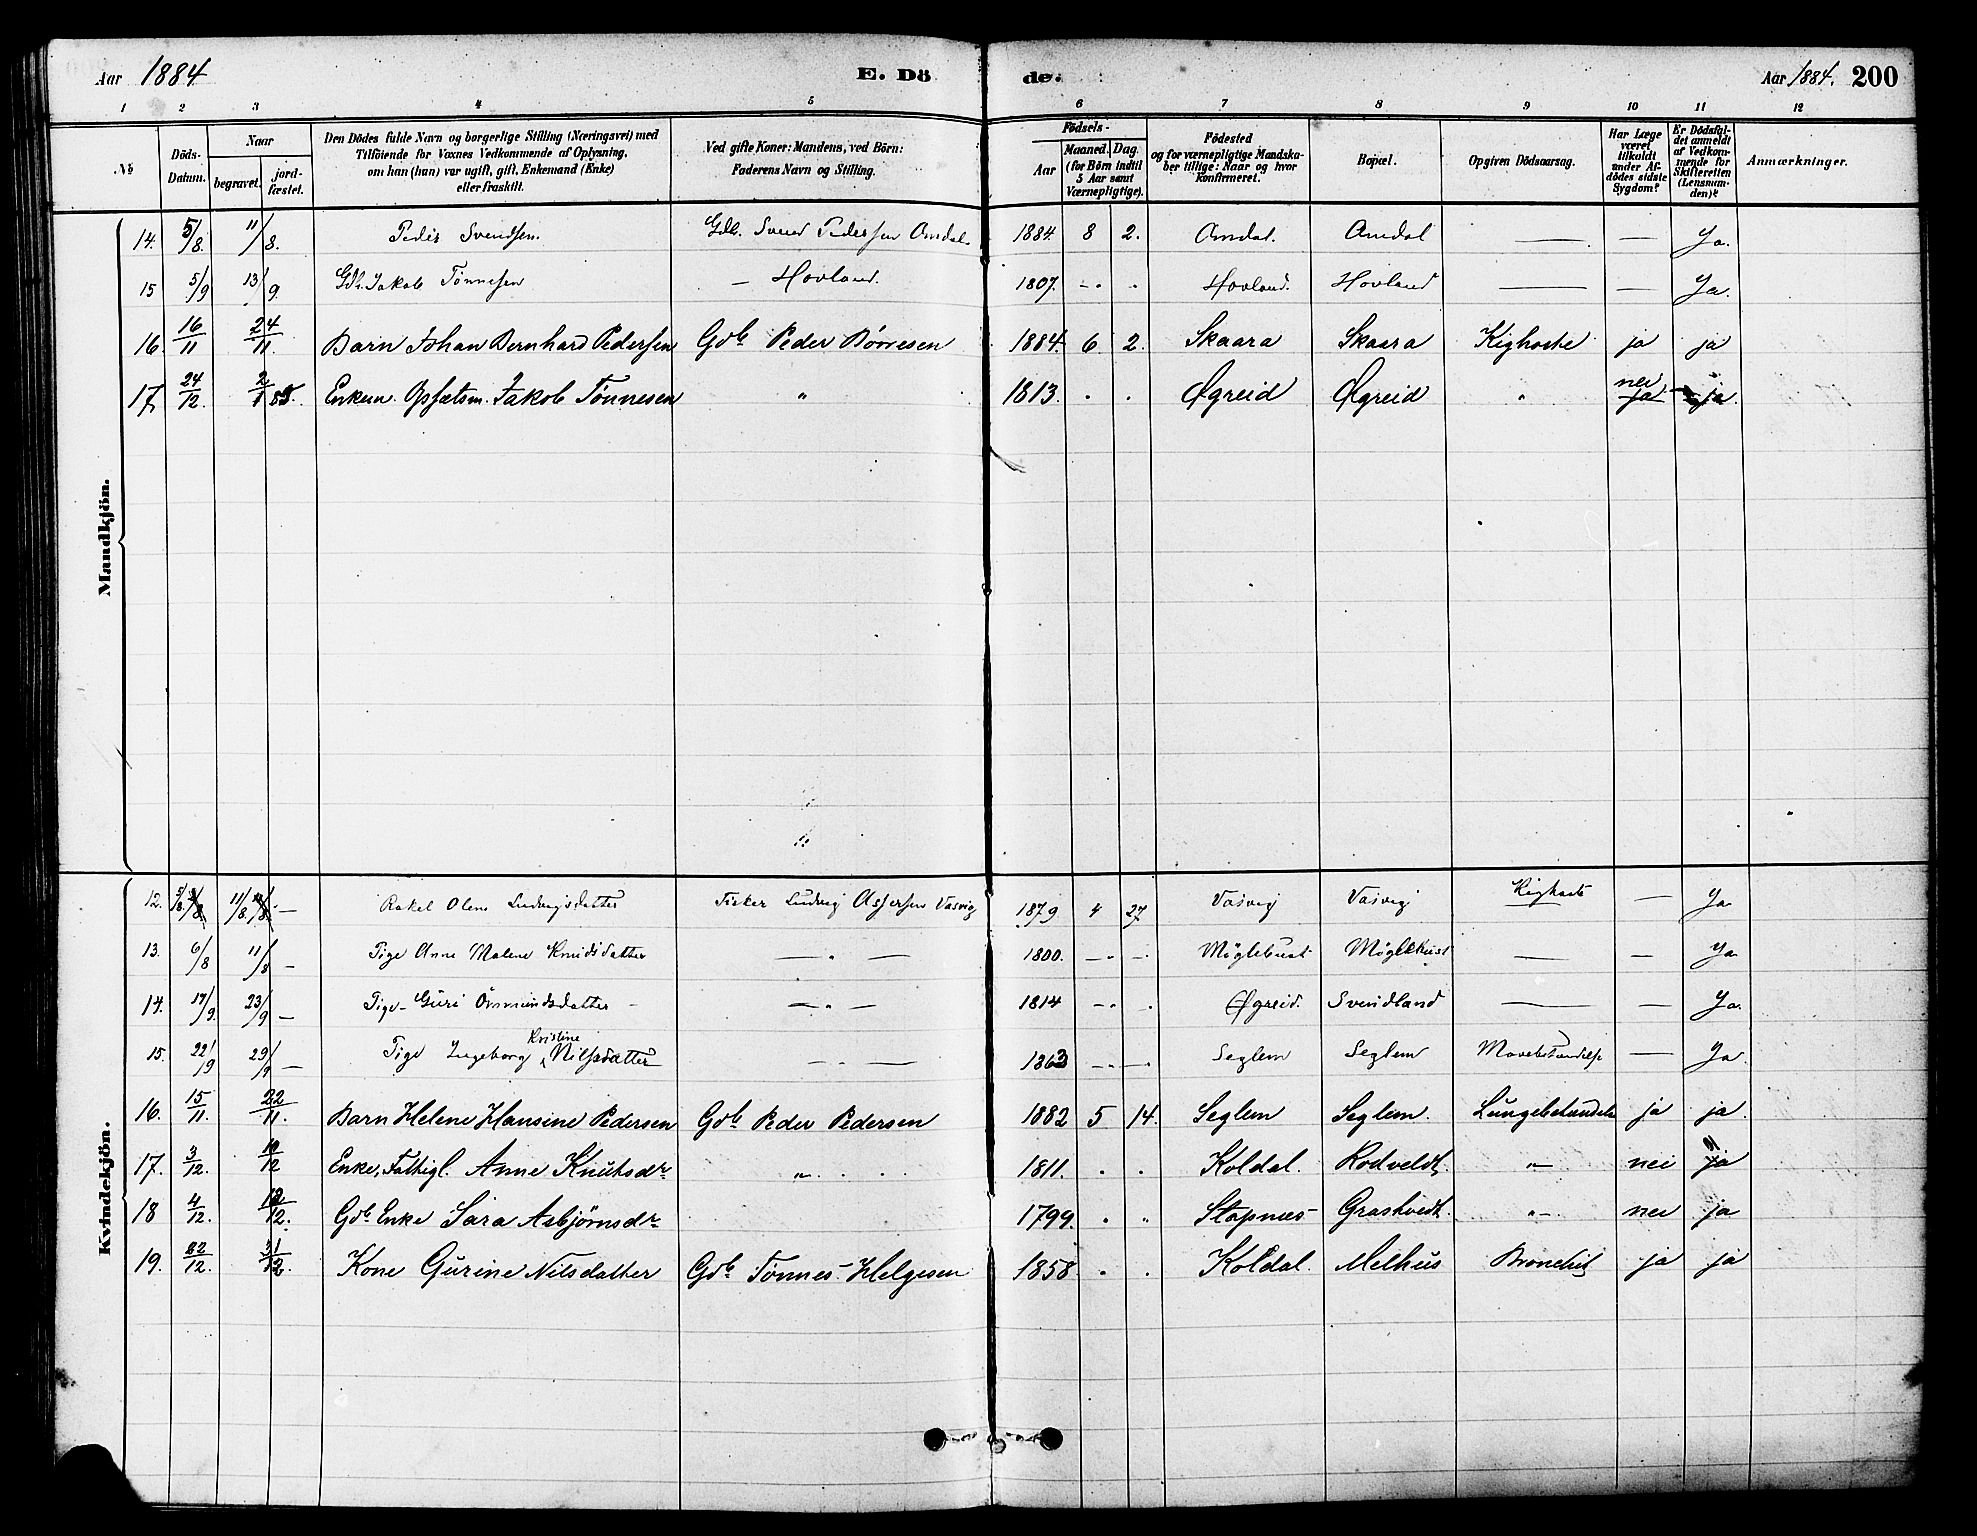 Aar 1884 E. Dö de. Aar 1884. 200
1 2 3 4 5 6 7 8 9 10 11 12
№
Döds-Datum.
Naar
begravet.
jord-fæstet.
Den Dödes fulde Navn og borgerlige Stilling (Næringsvei) med
Tilföiende for Voxnes Vedkommende af Oplysning,
om han (hun) var ugift, gift, Enkemand (Enke)
eller fraskilt.
Ved gifte Koner: Mandens, ved Börn:
Faderens Navn og Stilling.
Födsels-
Aar
Maaned. Dag.
(for Börn indtil
5 Aar samt
Værnepligtige).
Födested
og for værnepligtige Mandska-
ber tillige: Naar og hvor
konfirmeret.
Bopæl.
Opgiven Dödsaarsag.
Har Læge
været
tilkaldt
under Af-
dödes sidste
Sygdom?
Er Dödsfal-
det anmeldt
af Vedkom-
mende for
Skifteretten
(Lensman-
den)?
Anmærkninger.
Mandkjön.
14. 5/8. 11/8. Peder Svendsen. Gdb. Svend Pedersen Omdal. 1884. 8 2. Omdal. Omdal — — Ja.
15 5/9 13/9. Gdb. Jakob Tønnesen — Hovland. 1807. Hovland. Hovland — — Ja.
16. 16/11 24/11. Barn Johan Bernhard Pedersen Gdb. Peder Børresen 1884. 6. 2. Skaara Skaara Kighoste ja ja
17. 24/12. 2/1 85. Enkem. Opsætsm. Jakob Tønnesen " 1813. Øgreid Øgreid " nei ja ja.
Kvindekjön.
12. 5/8 11/8 — Rakel Olene Ludvigsdatter Fisker Ludvig Assersen Vasvig 1879 4 27 Vasvig Vasvig Kighoste — Ja
13. 6/8 11/8 — Pige Anne Malene Knudsdatter — " — 1800. Möglebust Möglebust — — Ja
14. 17/9. 23/9 — Pige Guri Ommundsdatter — " — 1814 Øgreid. Svendland — — Ja.
15. 22/9 29/9 — Pige Ingeborg Kristine Nilsdatter — " — 1863 Seglem Seglem Mavebetændelse — Ja
16. 15/11. 22/11. Barn Helene Hansine Pedersen Gdb. Peder Pedersen 1882 5. 14. Seglem Seglem. Lungebetændelse ja ja.
17. 3/12. 10/12 Enke, Fattigl. Anne Knutsdr. " 1811. Koldal. Rodveldt " nei ja
18 4/12. 12/12. Gdb. Enke Sara Asbjørnsdr. 1799. Stapnæs Grastvedt " nei ja
19. 22/12. 31/12. Kone Gurine Nilsdatter Gdb. Tønnes Helgesen 1858 Koldal. Melhus Bronchit ja ja